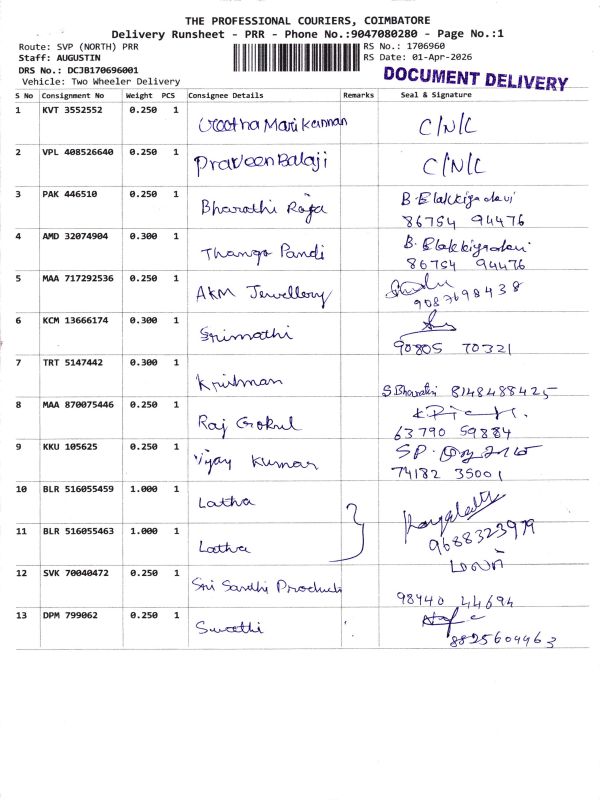 THE PROFESSIONAL COURIERS, COIMBATORE
Delivery Runsheet - PRR - Phone No.:9047080280 - Page No.:1
Route: SVP (NORTH) PRR
RS No.: 1706960
Staff: AUGUSTIN
RS Date: 01-Apr-2026
DRS No.: DCJB170696001
Vehicle: Two Wheeler Delivery
DOCUMENT DELIVERY
S No Consignment No Weight PCS Consignee Details Remarks Seal & Signature
1 KVT 3552552 0.250 1 Geetha Mari Kannan C/N/C
2 VPL 408526640 0.250 1 Praveen Balaji C/N/C
3 PAK 446510 0.250 1 Bharathi Raja B. Elakkiyadevi
86754 94476
4 AMD 32074904 0.300 1 Thanga Pandi B. Elakkiyadevi
86754 94476
5 MAA 717292536 0.250 1 AKM Jewellery
9087698438
6 KCM 13666174 0.300 1 Srimathi
90805 70321
7 TRT 5147442 0.300 1 Krishnan S Bharathi 8148488425
8 MAA 870075446 0.250 1 Raj Gokul
63790 59884
9 KKU 105625 0.250 1 Vijay Kumar SP.
74182 35001
10 BLR 516055459 1.000 1 Latha
11 BLR 516055463 1.000 1 Latha 9688323979
12 SVK 70040472 0.250 1 Sri Sandhi Products
98440 44694
13 DPM 799062 0.250 1 Swathi
8825604463